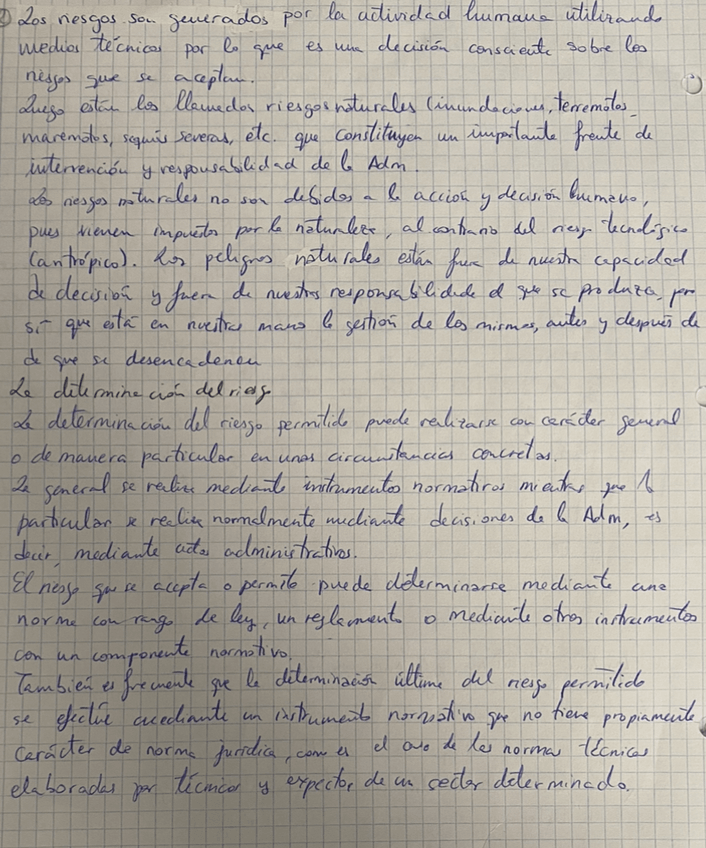 ② Los riesgos son generados por la actividad humana utilizando
medios técnicos por lo que es una decisión consciente sobre los
riesgos que se aceptan.
Luego están los llamados riesgos naturales (inundaciones, terremotos,
maremotos, sequías severas, etc. que constituyen un importante frente de
intervención y responsabilidad de la Adm.
Los riesgos naturales no son debidos a la acción y decisión humana,
pues vienen impuestos por la naturaleza, al contrario del riesgo tecnológico
(antrópico). Los peligros naturales están fuera de nuestra capacidad
de decisión y fuera de nuestras responsabilidade el que se produzca, pero
sí que está en nuestras manos la gestión de los mismos, antes y después de
de que se desencadenen
La determinación del riesgo
La determinación del riesgo permitido puede realizarse con carácter general
o de manera particular en unas circunstancias concretas.
La general se realiza mediante instrumentos normativos mientras que la
particular se realiza normalmente mediante decisiones de la Adm, es
decir, mediante actos administrativos.
El riesgo que se acepta o permite puede determinarse mediante una
norma con rango de ley, un reglamento o mediante otros instrumentos
con un componente normativo.
También es frecuente que la determinación última del riesgo permitido
se efectúe mediante un instrumento normativo que no tiene propiamente
carácter de norma jurídica, como es el caso de las normas técnicas
elaboradas por técnicos y expertos de un sector determinado.